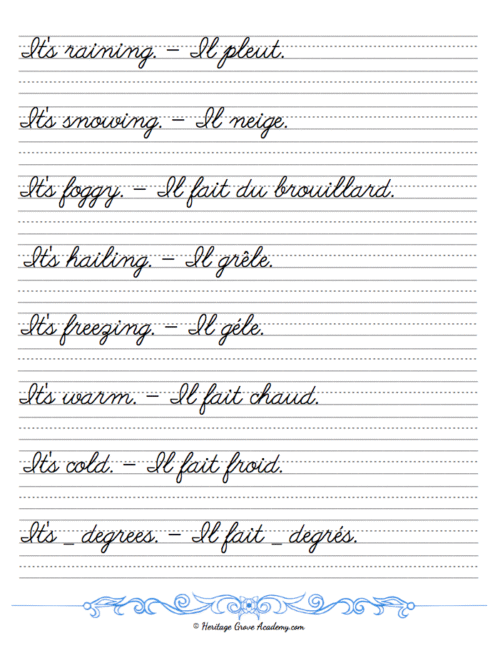 It's raining. – Il pleut.
It's snowing. – Il neige.
It's foggy. – Il fait du brouillard.
It's hailing. – Il grêle.
It's freezing. – Il géle.
It's warm. – Il fait chaud.
It's cold. – Il fait froid.
It's _ degrees. – Il fait _ degrés.
© Heritage Grove Academy.com